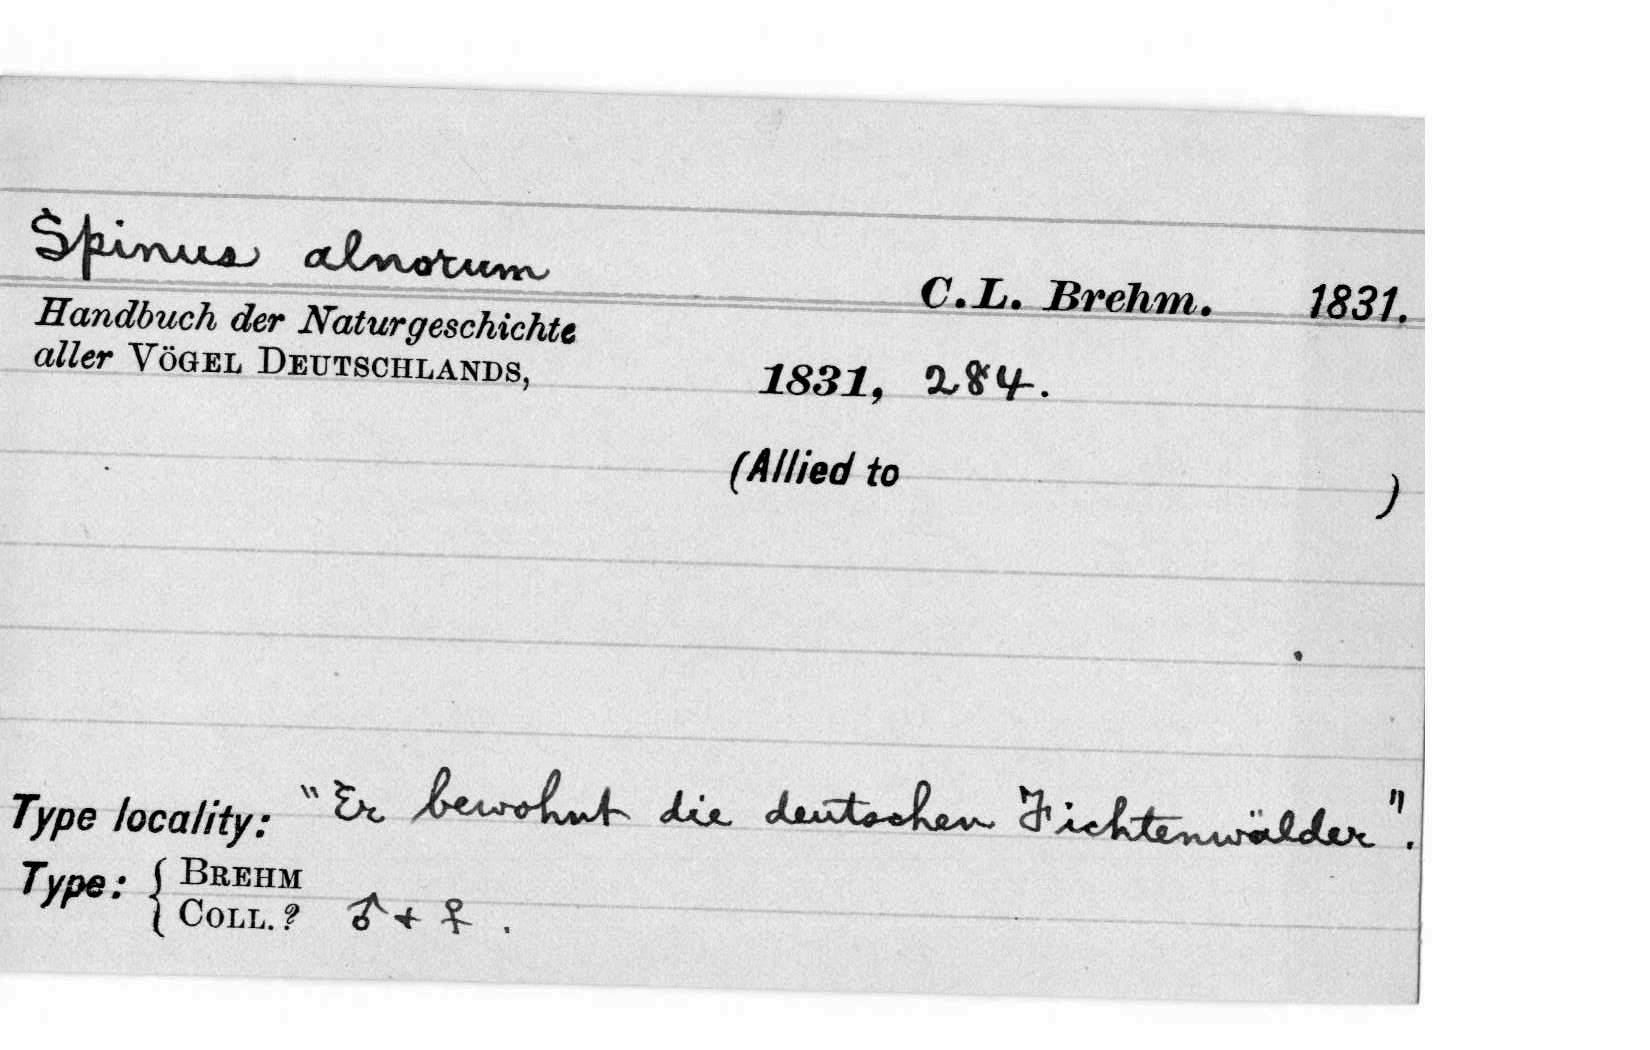 Spinus alnorum
C. L. Brehm. 1831.
Handbuch der Naturgeschichte
aller VÖGEL DEUTSCHLANDS,
1831, 284.
(Allied to )
Type locality: "Er bewohnt die deutschen Fichtenwälder".
Type: { BREHM
COLL.? ♂ + ♀ .